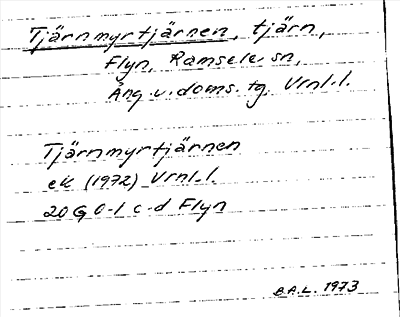 Tjärnmyrtjärnen, tjärn,
Flyn, Ramsele sn,
Ång. v. doms. tg. Vrnl. l.
Tjärnmyrtjärnen
ek (1972) Vrnl. l.
20 G 0-1 c-d Flyn
B.A.L. 1973